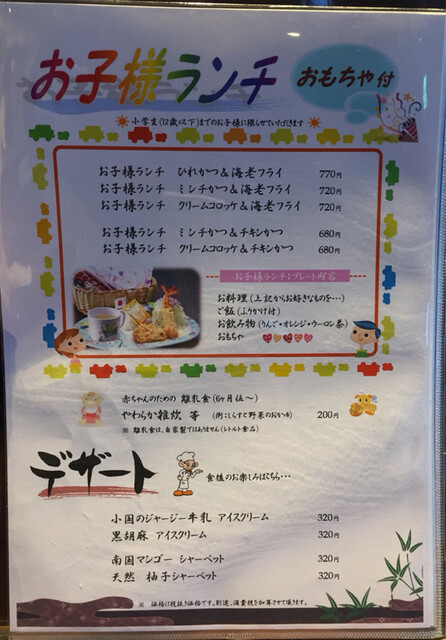 お子様ランチ おもちゃ付
小学生(12歳以下)までのお子様に限らせていただきます
お子様ランチ ひれかつ&海老フライ 770円
お子様ランチ ミンチかつ&海老フライ 720円
お子様ランチ クリームコロッケ&海老フライ 720円
お子様ランチ ミンチかつ&チキンかつ 680円
お子様ランチ クリームコロッケ&チキンかつ 680円
お子様ランチ:プレート内容
お料理(上記からお好きなものを…)
ご飯(ふりかけ付)
お飲み物(りんご・オレンジ・ウーロン茶)
おもちゃ
赤ちゃんのための 離乳食(6ヶ月位~)
やわらか雑炊 等 (例:しらすと野菜のおかゆ) 200円
※ 離乳食は、自家製ではありません(レトルト食品)
デザート 食後のお楽しみはこちら…
小国のジャージー牛乳 アイスクリーム 320円
黒胡麻 アイスクリーム 320円
南国マンゴー シャーベット 320円
天然 柚子シャーベット 320円
※ 価格は税抜き価格です。別途、消費税を加算させて頂きます。